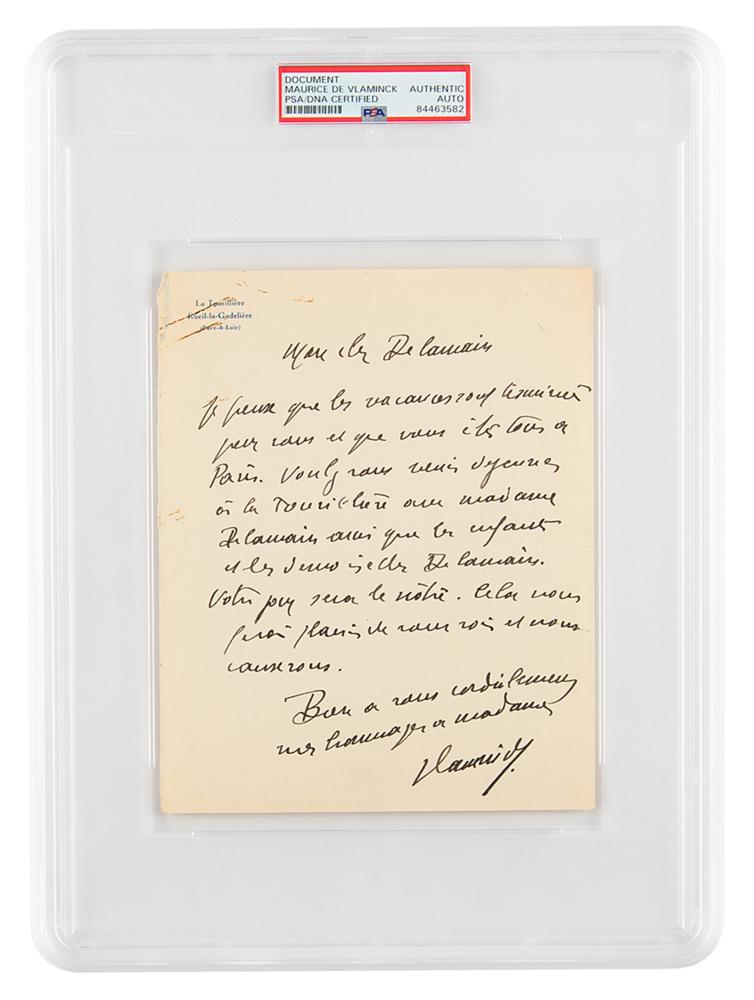 DOCUMENT
MAURICE DE VLAMINCK AUTHENTIC
PSA/DNA CERTIFIED AUTO
PSA 84463582
La Tourillière
Rueil-la-Gadelière
(Eure-&-Loir)
Mon cher Delamain
Je pense que les vacances sont terminées
pour vous et que vous êtes tous à
Paris. Voulez vous venir dejeuner
à la Tourillière avec madame
Delamain ainsi que les enfants
et les demoiselles Delamain.
Votre jour sera le nôtre. Cela nous
fera plaisir de vous voir et nous
causerons.
Bien a vous cordialement
mes hommages a madame
Vlaminck.